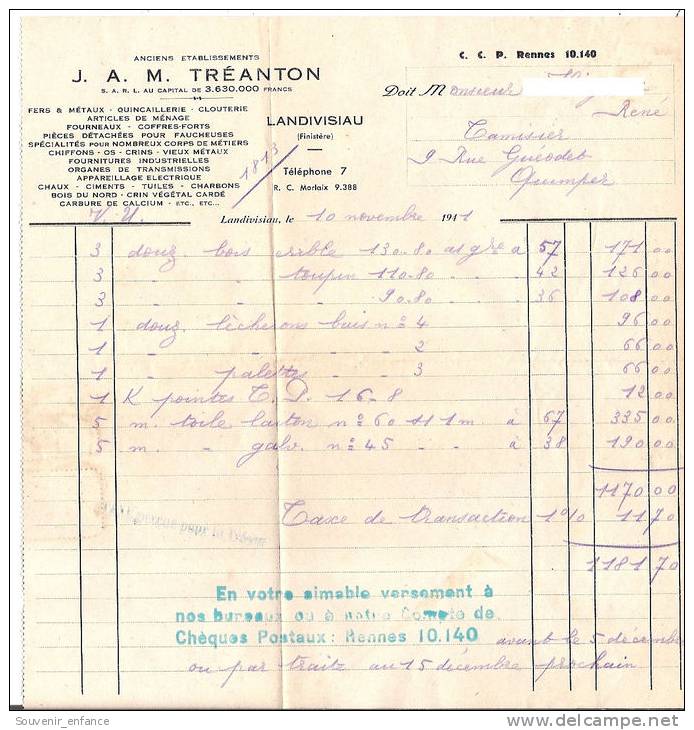 ANCIENS ETABLISSEMENTS
J. A. M. TRÉANTON
S. A. R. L. AU CAPITAL DE 3.630.000 FRANCS
FERS & MÉTAUX - QUINCAILLERIE - CLOUTERIE
ARTICLES DE MÉNAGE
FOURNEAUX - COFFRES-FORTS
PIÈCES DÉTACHÉES POUR FAUCHEUSES
SPÉCIALITÉS POUR NOMBREUX CORPS DE MÉTIERS
CHIFFONS - OS - CRINS - VIEUX MÉTAUX
FOURNITURES INDUSTRIELLES
ORGANES DE TRANSMISSIONS
APPAREILLAGE ELECTRIQUE
CHAUX - CIMENTS - TUILES - CHARBONS
BOIS DU NORD - CRIN VÉGÉTAL CARDÉ
CARBURE DE CALCIUM - ETC., ETC...
V. U.
1813
LANDIVISIAU
(Finistère)
Téléphone 7
R. C. Morlaix 9.388
C. C. P. Rennes 10.140
Doit Monsieur
René
Tamisier
9 Rue Guéodet
Quimper
Landivisiau, le 10 novembre 1941
3 douz bois crible 130-80 à 57 171 00
3 - - toupin 110-80 - - 42 126 00
3 - - - 90-80 - - 36 108 00
1 douz lècherons buis n° 4 96 00
1 - - - 2 66 00
1 - palettes - 3 66 00
1 K pointes T. P. 16-8 12 00
5 m. toile laiton n° 60 1m à 67 335 00
5 m. - galv. n° 45 - à 38 190 00
1170 00
Taxe de transaction 1% 11 70
1181 70
En votre aimable versement à
nos bureaux ou à notre Compte de
Chèques Postaux: Rennes 10.140 avant le 5 décembre
ou par traite au 15 décembre prochain
Souvenir_enfance
delcampe.net